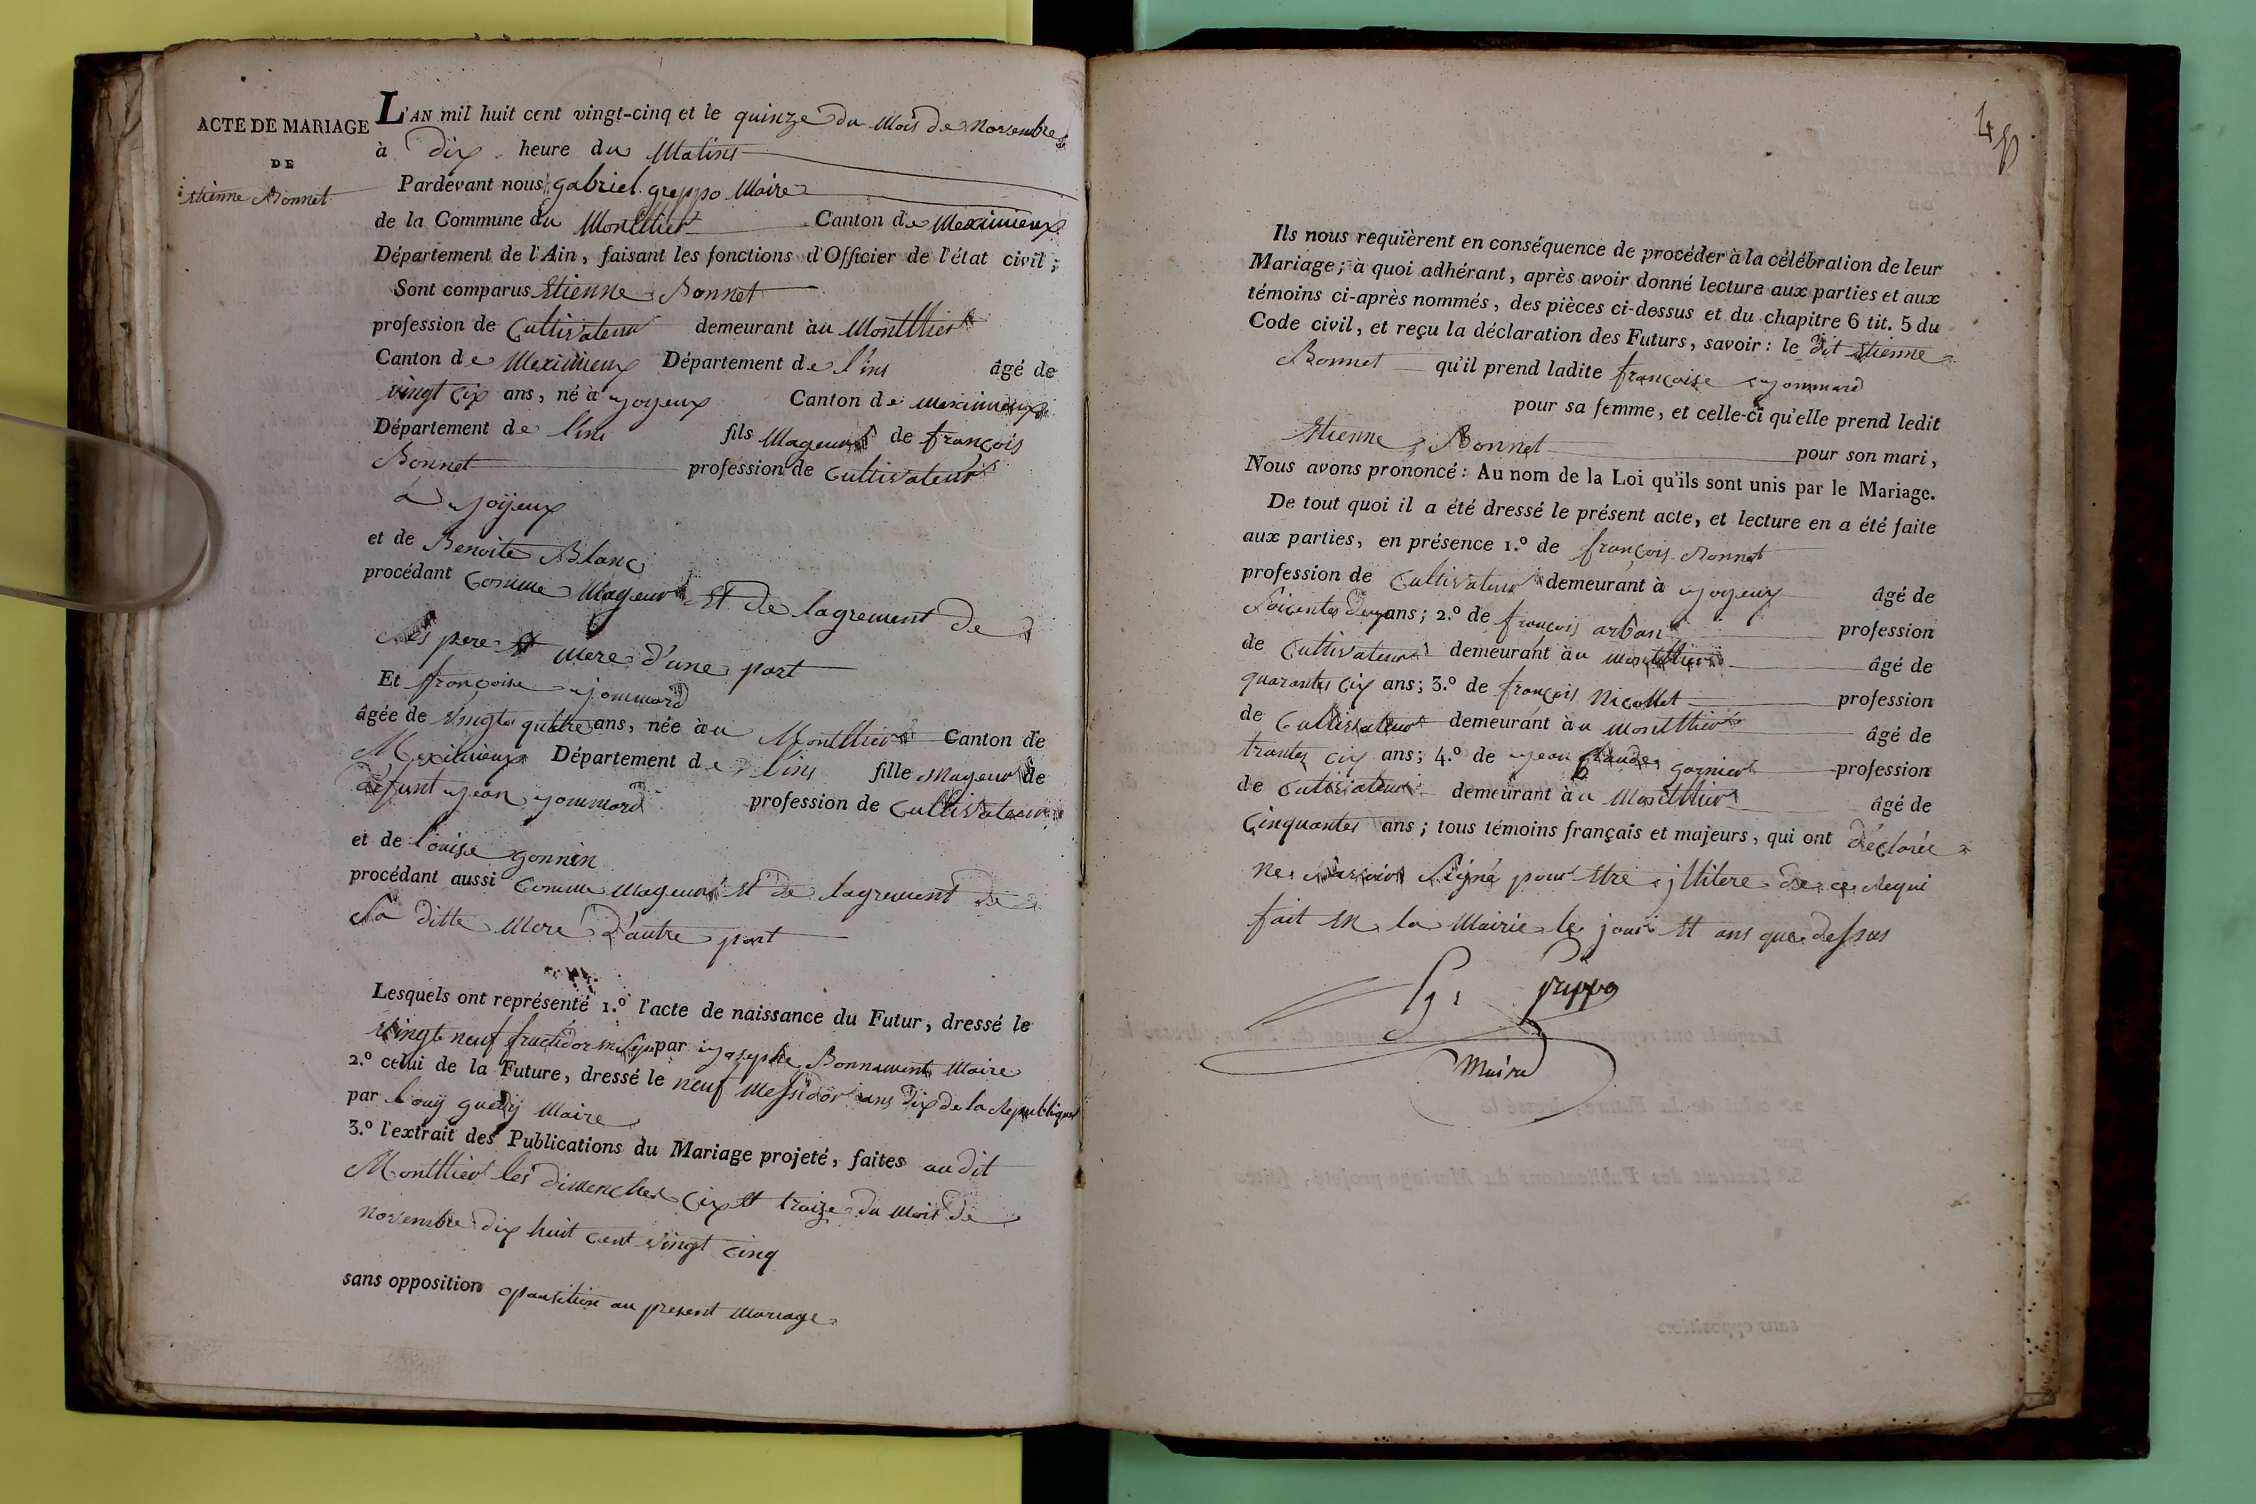 ACTE DE MARIAGE
DE
etienne Bonnet
L'AN mil huit cent vingt-cinq et le quinze du Mois de Novembre
à dix heure du Matins
Pardevant nous gabriel greppo Maire
de la Commune du Montllier Canton de Meximieux
Département de l'Ain, faisant les fonctions d'Officier de l'état civil;
Sont comparus Etienne Bonnet
profession de Cultivateur demeurant àu Montllier
Canton de Meximieux Département de l'ins âgé de
vingt cix ans, né à joyeux Canton de Meximieux
Département de l'ins fils Mageur de françois
Bonnet profession de Cultivateur
à joyeux
et de Benoite Blanc
procédant Comme Mageur Et de lagrement de
ces pere et Mere d'une part
Et françoise jommard
âgée de vingt quatre ans, née àu Montllier Canton de
Meximieux Département de l'ins fille Mageur de
défunt jean jommard profession de Cultivateur
et de louise gonnin
procédant aussi Comme Mageur Et de lagrement de
Sa ditte Mere d'autre part
Lesquels ont représenté 1.º l'acte de naissance du Futur, dressé le
vingt neuf fructidor par josephe Bonnament Maire
2.º celui de la Future, dressé le neuf Messidor ans dix de la Republique
par louÿ Maire
3.º l'extrait des Publications du Mariage projeté, faites audit
Montllier les dimenches cix Et traize du Mois de
novembre dix huit Cent vingt Cinq
sans opposition opausition au present Mariage
48
Ils nous requièrent en conséquence de procéder à la célébration de leur
Mariage; à quoi adhérant, après avoir donné lecture aux parties et aux
témoins ci-après nommés, des pièces ci-dessus et du chapitre 6 tit. 5 du
Code civil, et reçu la déclaration des Futurs, savoir: le dit Etienne
Bonnet qu'il prend ladite françoise jommard
pour sa femme, et celle-ci qu'elle prend ledit
Etienne Bonnet pour son mari,
Nous avons prononcé: Au nom de la Loi qu'ils sont unis par le Mariage.
De tout quoi il a été dressé le présent acte, et lecture en a été faite
aux parties, en présence 1.º de françois Bonnet
profession de Cultivateur demeurant à joyeux âgé de
Soicentes deux ans; 2.º de françois arban profession
de Cultivateur demeurant àu Montllier âgé de
quarantes cix ans; 3.º de françois Nicollet profession
de Cultivateur demeurant àu Montllier âgé de
trantes cix ans; 4.º de jean Claude garnier profession
de Cultivateur demeurant àu Montllier âgé de
Cinquantes ans; tous témoins français et majeurs, qui ont déclarée
ne Savoir Signé pour Etre jllitere de ce Requi
fait en la Mairie le jour Et ans que dessus
Greppo
Maire